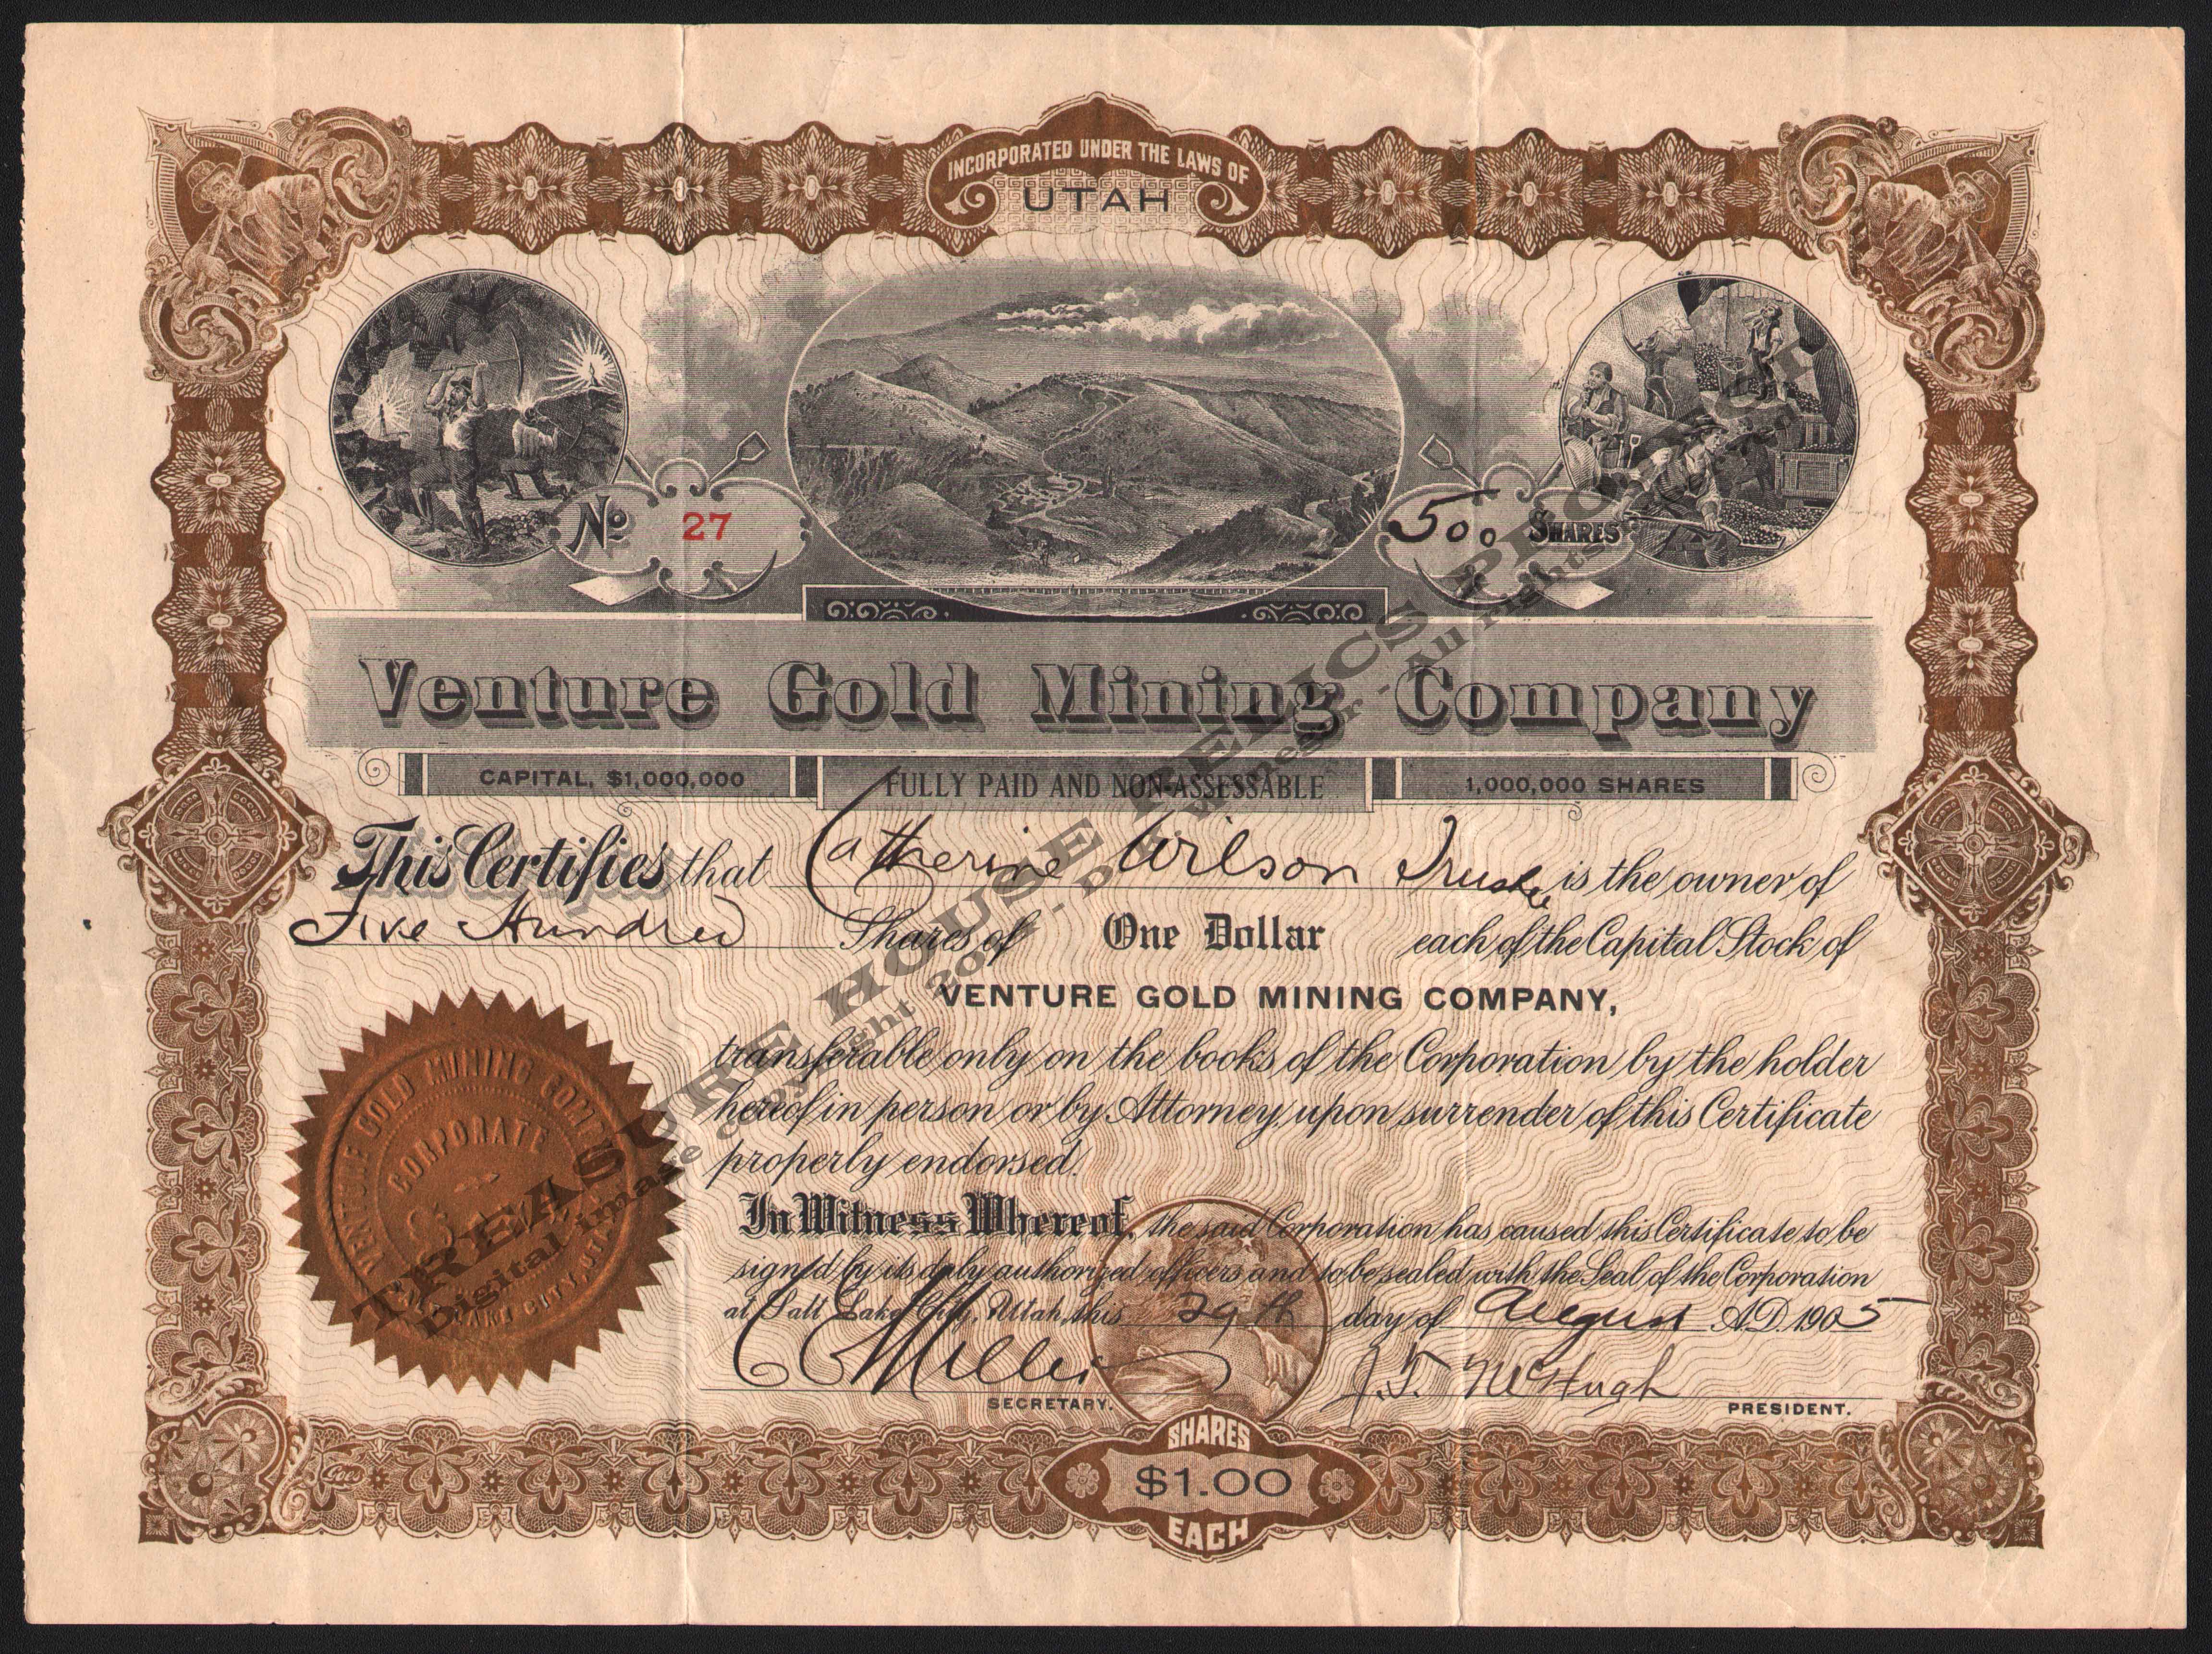 INCORPORATED UNDER THE LAWS OF
UTAH
No 27
500 SHARES
Venture Gold Mining Company
CAPITAL, $1,000,000
FULLY PAID AND NON-ASSESSABLE
1,000,000 SHARES
This Certifies that Catherine Wilson Trustee is the owner of
Five Hundred Shares of One Dollar each of the Capital Stock of
VENTURE GOLD MINING COMPANY,
transferable only on the books of the Corporation by the holder
hereof in person or by Attorney, upon surrender of this Certificate
properly endorsed.
In Witness Whereof, the said Corporation has caused this Certificate to be
signed by its duly authorized officers and to be sealed with the Seal of the Corporation
at Salt Lake City, Utah, this 29th day of August A.D. 1905
SECRETARY.
J.T. McHugh
PRESIDENT.
VENTURE GOLD MINING COMPANY
CORPORATE
CITY, UTAH
Goes
SHARES
$1.00
EACH
TREASURE HOUSE RELICS PROJECT
Digital image copyright - All rights